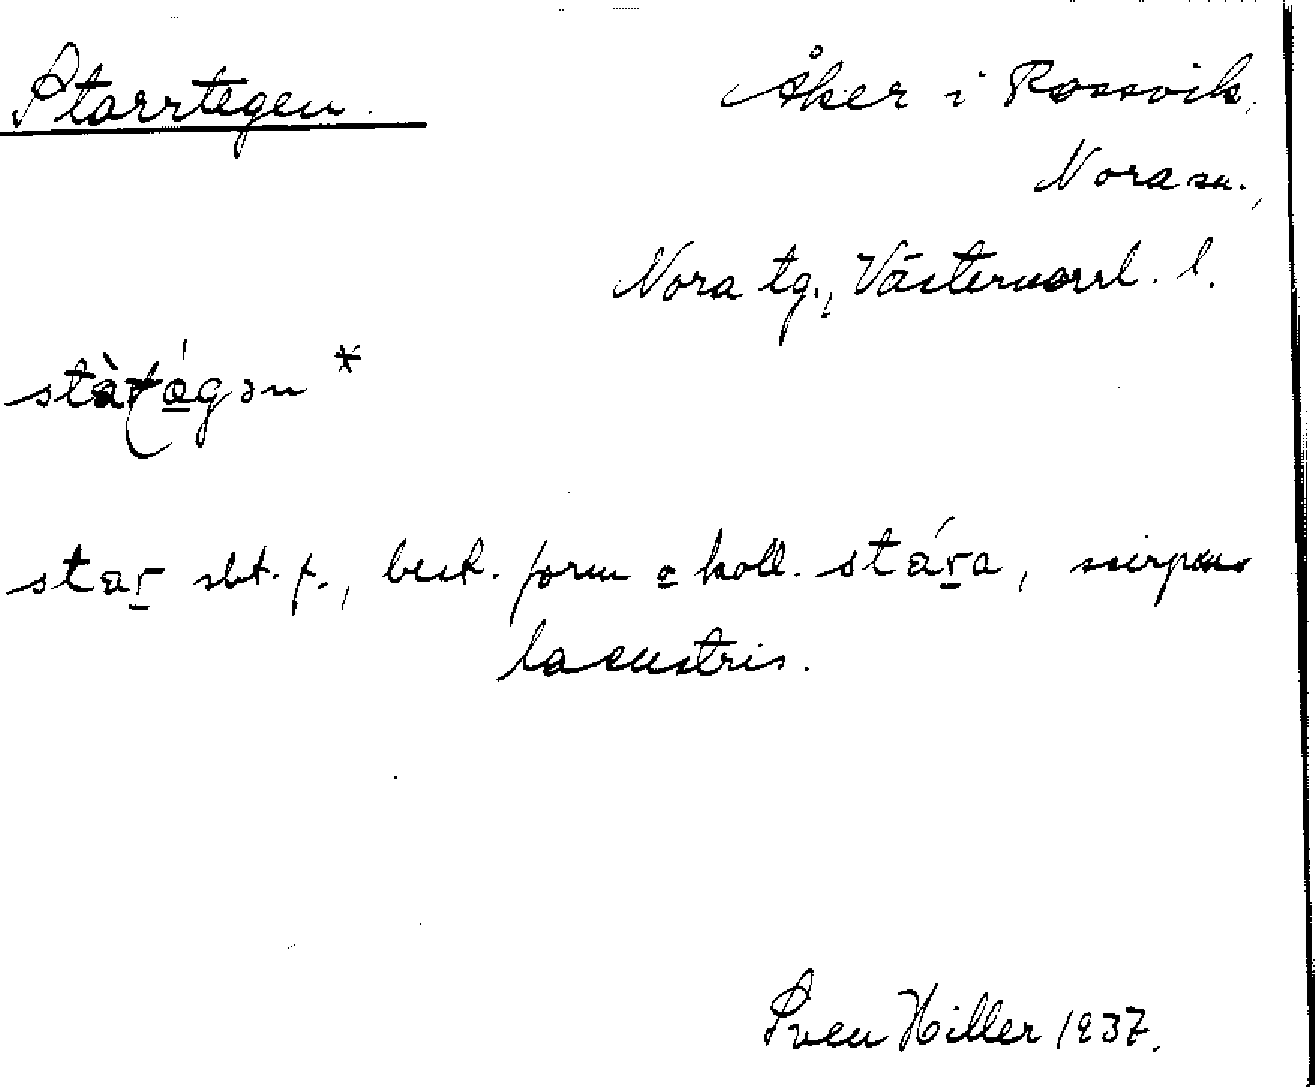 Starrtegen.
Åker i Rossvik,
Nora sn.,
Nora tg., Västernorrl. l.
star sbt. f., best. form o koll. stára, scirpus
lacustris.
Sven Hiller 1937.